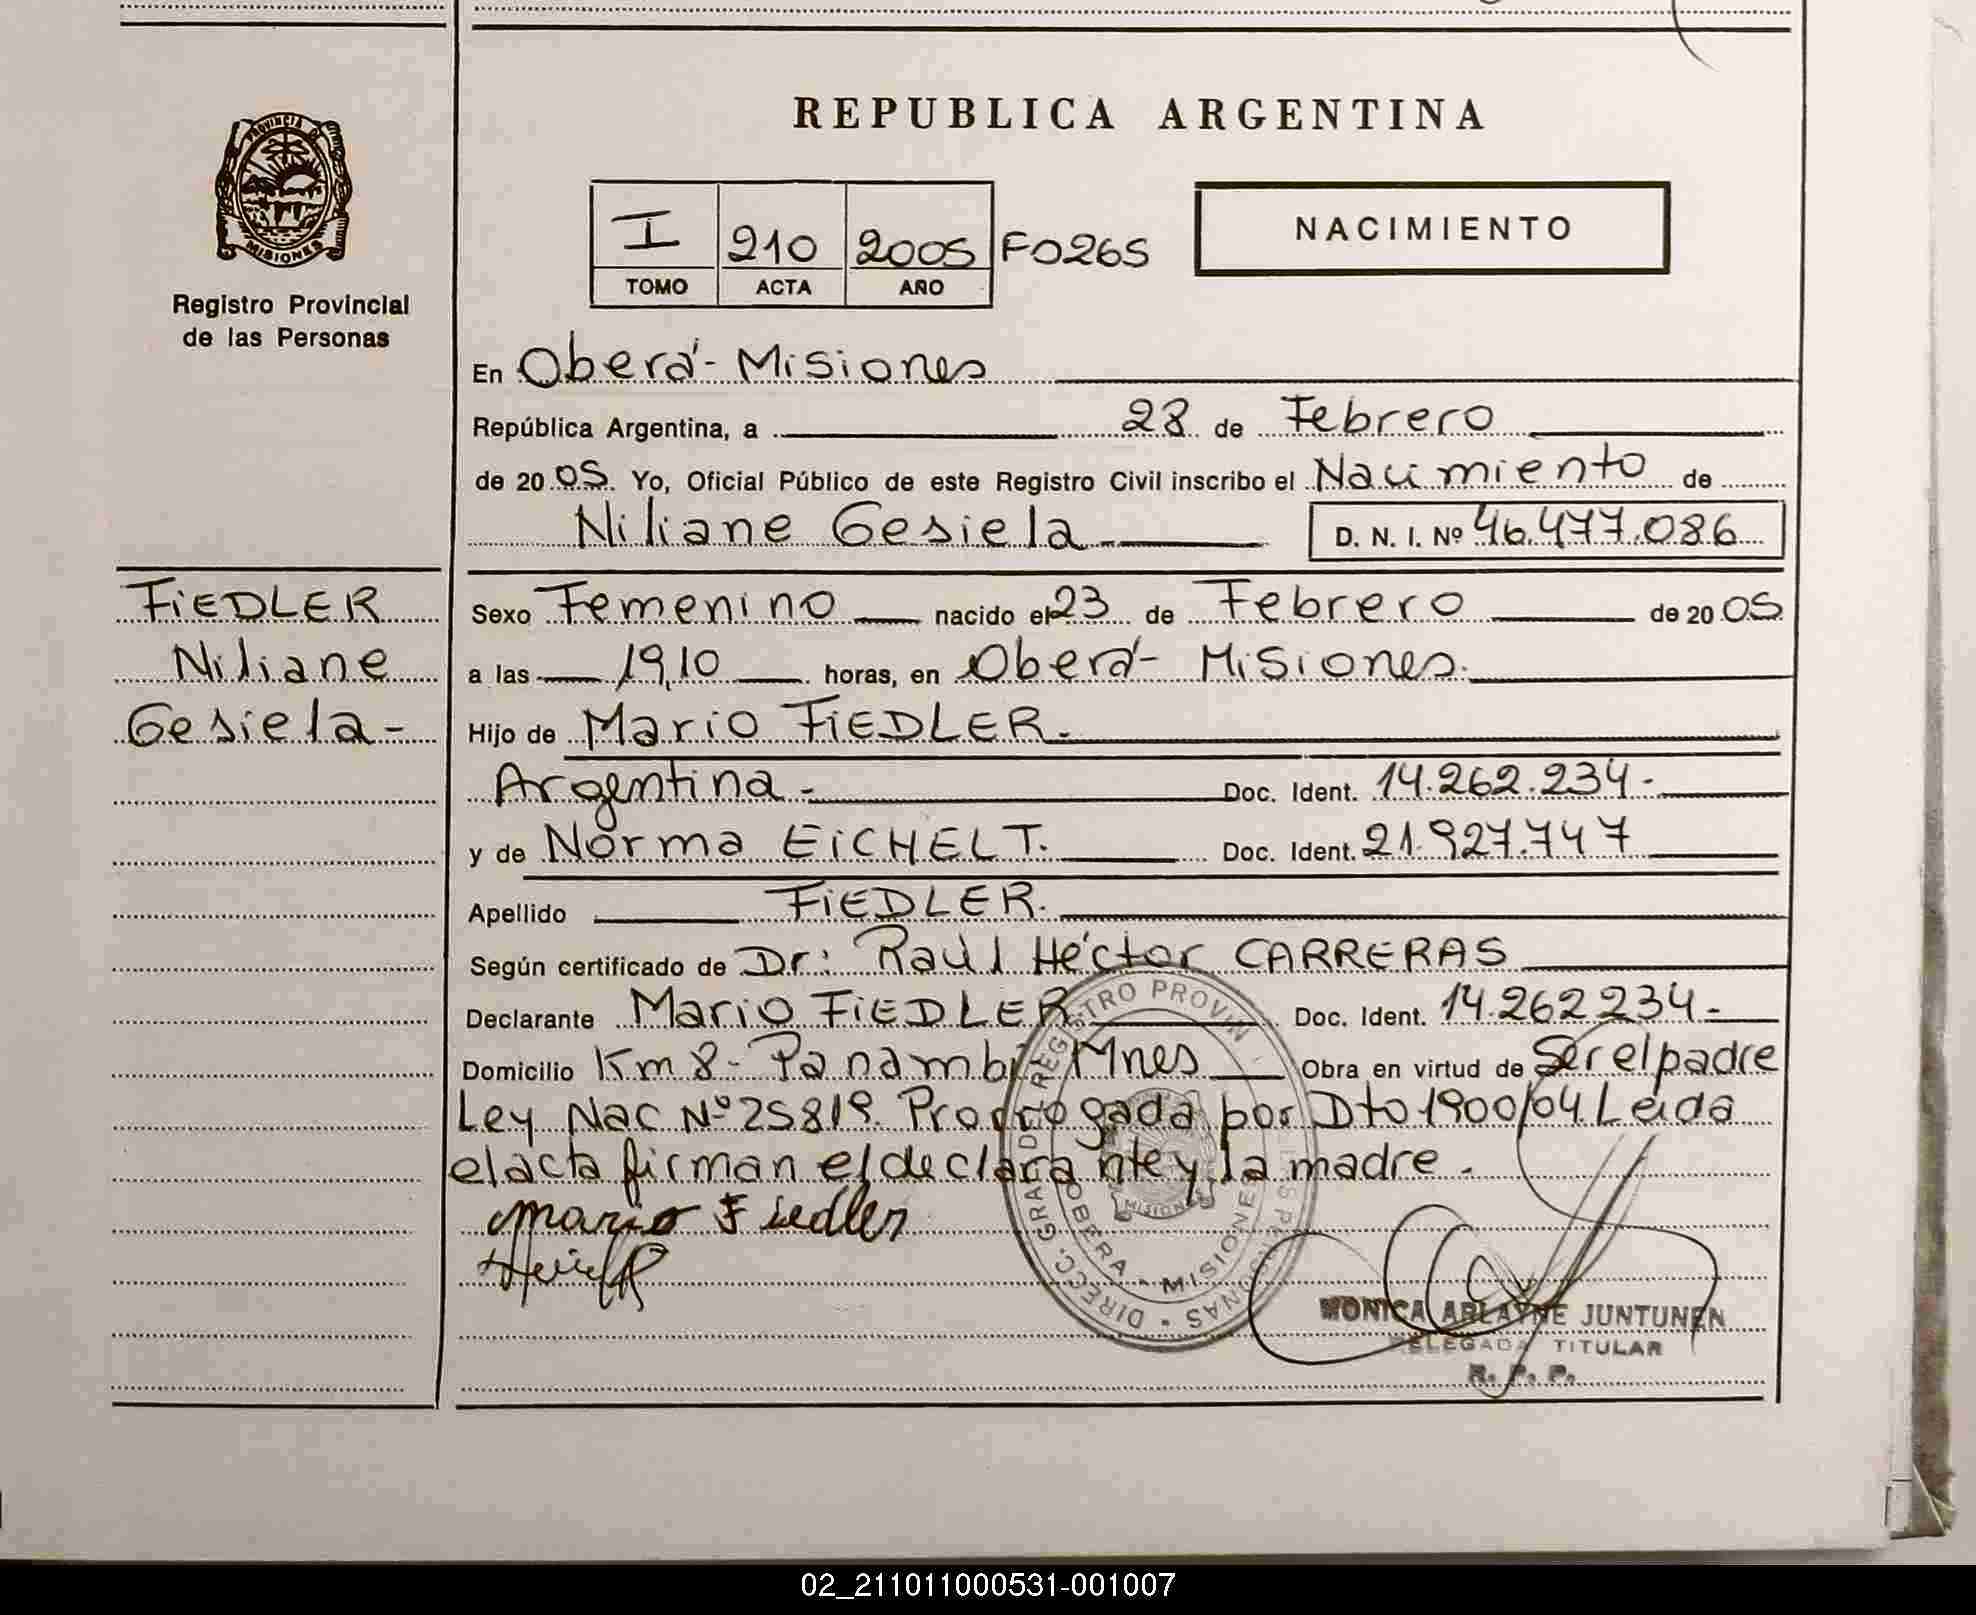 REPUBLICA ARGENTINA
PROVINCIA DE
MISIONES
Registro Provincial
de las Personas
I 210 2005 F0265
TOMO ACTA AÑO
NACIMIENTO
En Oberá - Misiones
República Argentina, a 28 de Febrero
de 2005. Yo, Oficial Público de este Registro Civil inscribo el Nacimiento de
Niliane Gesiela D. N. I. Nº 46.477.086
FiEDLER
Niliane
Gesiela-
Sexo Femenino nacido el 23 de Febrero de 2005
a las 19,10 horas, en Oberá - Misiones.
Hijo de Mario FiEDLER.
Argentina - Doc. Ident. 14.262.234-
y de Norma EiCHELT. Doc. Ident. 21.927.747
Apellido FiEDLER.
Según certificado de Dr: Raúl Héctor CARRERAS
Declarante Mario FiEDLER Doc. Ident. 14.262234-
Domicilio Km 8- Panambí Mnes Obra en virtud de Ser el padre
Ley Nac Nº 25819. Prorrogada por Dto 1900/04. Leida
el acta firman el declarante y la madre.
Mario Fiedler
DIRECC. GRAL. DE REGISTRO PROVIN PERSONAS
OBERA - MISIONES
MISIONES
MONICA ARLAYNE JUNTUNEN
DELEGADA TITULAR
R. P. P.
02_211011000531-001007